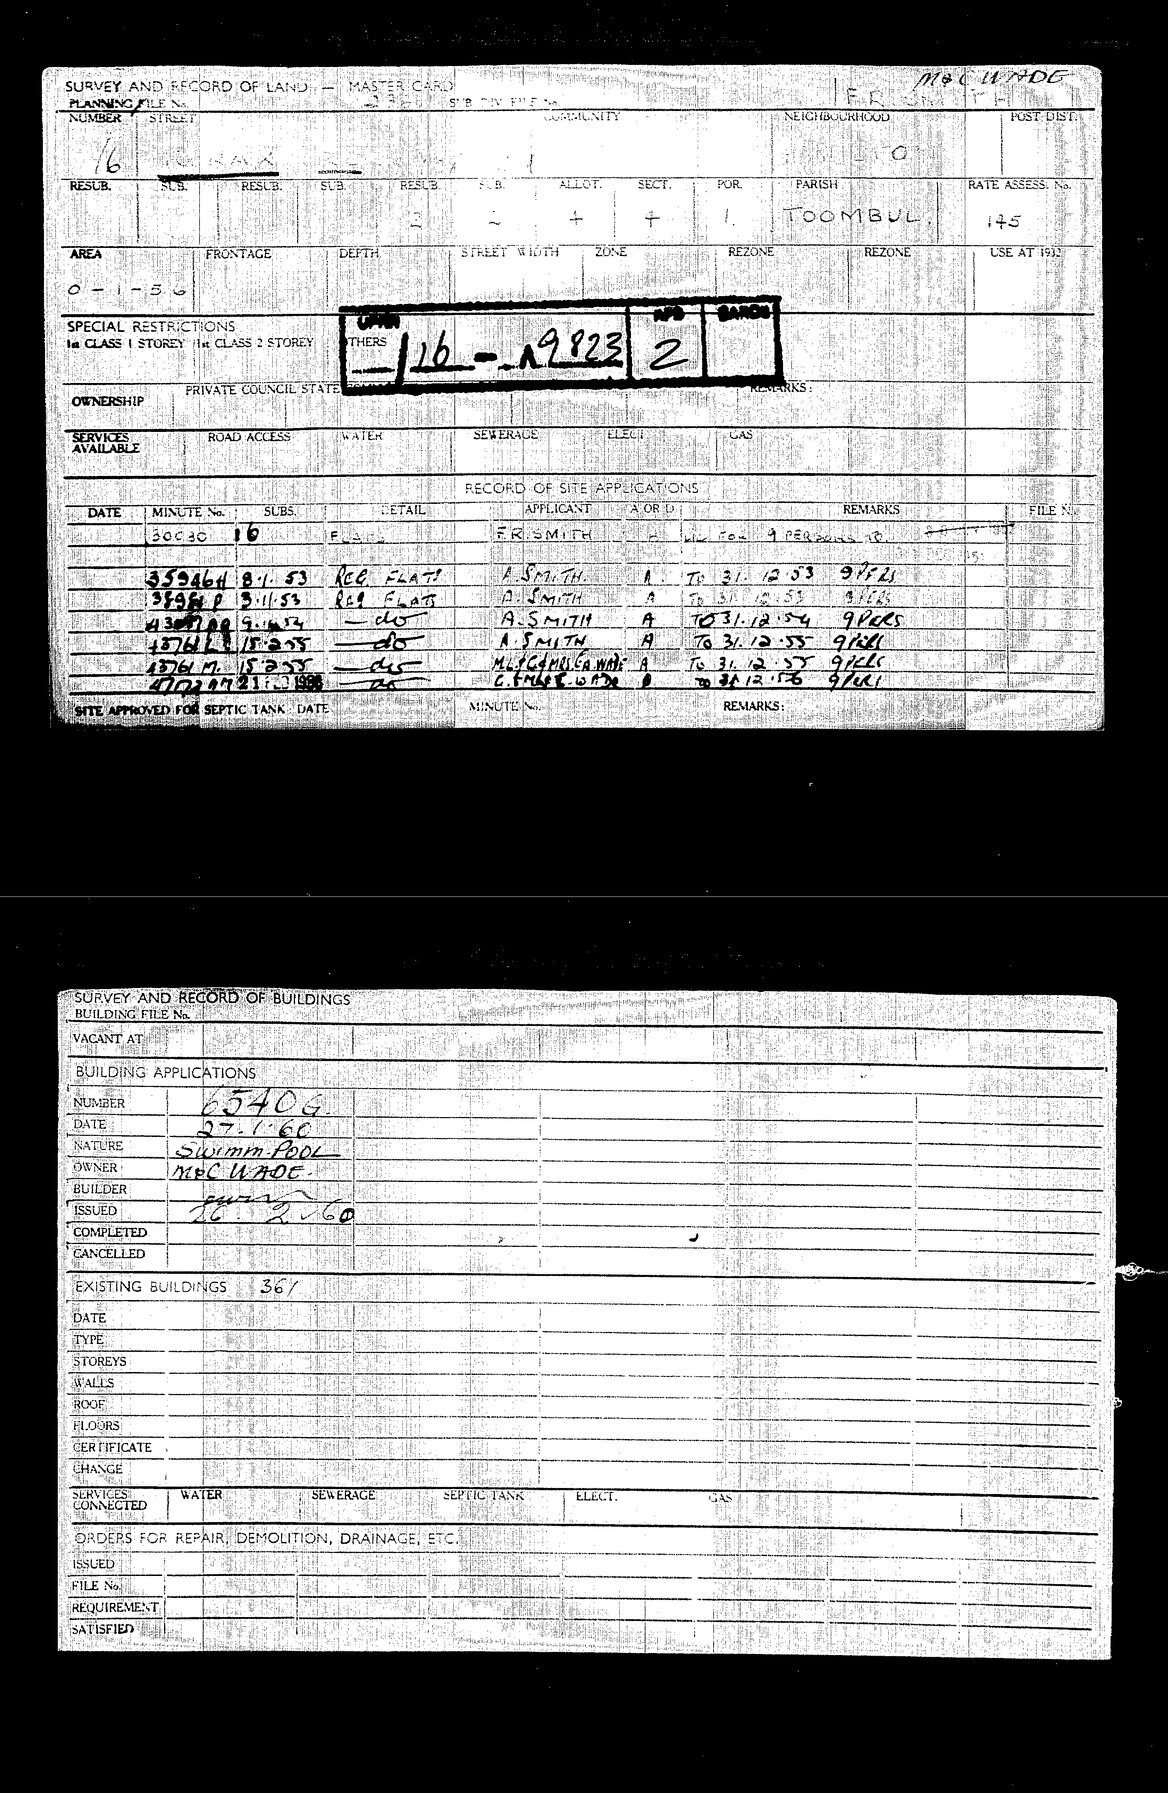 M&C WADE
SURVEY AND RECORD OF LAND — MASTER CARD
F.R. SMITH
PLANNING FILE No. SUB DIV. FILE No.
NUMBER STREET COMMUNITY NEIGHBOURHOOD POST DIST.
16
RESUB. SUB. RESUB. SUB. RESUB. SUB. ALLOT. SECT. POR. PARISH RATE ASSESS. No.
2 2 4 4 1 TOOMBUL. 145
AREA FRONTAGE DEPTH STREET WIDTH ZONE REZONE REZONE USE AT 1932
0 - 1 - 5 6
SPECIAL RESTRICTIONS
1st CLASS 1 STOREY 1st CLASS 2 STOREY OTHERS
APD CARDS
16 - 9823 2
PRIVATE COUNCIL STATE REMARKS:
OWNERSHIP
SERVICES AVAILABLE ROAD ACCESS WATER SEWERAGE ELECT. GAS
RECORD OF SITE APPLICATIONS
DATE MINUTE No. SUBS. DETAIL APPLICANT A OR D REMARKS FILE No.
30030 16 FLATS F.R. SMITH A LIC FOR 9 PERSONS TO
35946H 8.1.53 REG. FLATS A. SMITH. A. To 31.12.53 9 PERS
3.11.53 REG FLATS A. SMITH A To 31.12.53 9 PERS
— do A. SMITH A TO 31.12.54 9 PERS
15.2.55 — do A. SMITH A To 31.12.55 9 PERS
M. 15.2.55 — do WADE A To 31.12.55 9 PERS
21 FEB 1956 — do WADE To 31.12.56 9 PERS
SITE APPROVED FOR SEPTIC TANK: DATE MINUTE No. REMARKS:
SURVEY AND RECORD OF BUILDINGS
BUILDING FILE No.
VACANT AT
BUILDING APPLICATIONS
NUMBER 6540G.
DATE 27.1.60
NATURE SWIMM. POOL
OWNER M&C WADE.
BUILDER
ISSUED 26.2.60
COMPLETED
CANCELLED
EXISTING BUILDINGS 361
DATE
TYPE
STOREYS
WALLS
ROOF
FLOORS
CERTIFICATE
CHANGE
SERVICES CONNECTED WATER SEWERAGE SEPTIC TANK ELECT. GAS
ORDERS FOR REPAIR, DEMOLITION, DRAINAGE, ETC.
ISSUED
FILE No.
REQUIREMENT
SATISFIED